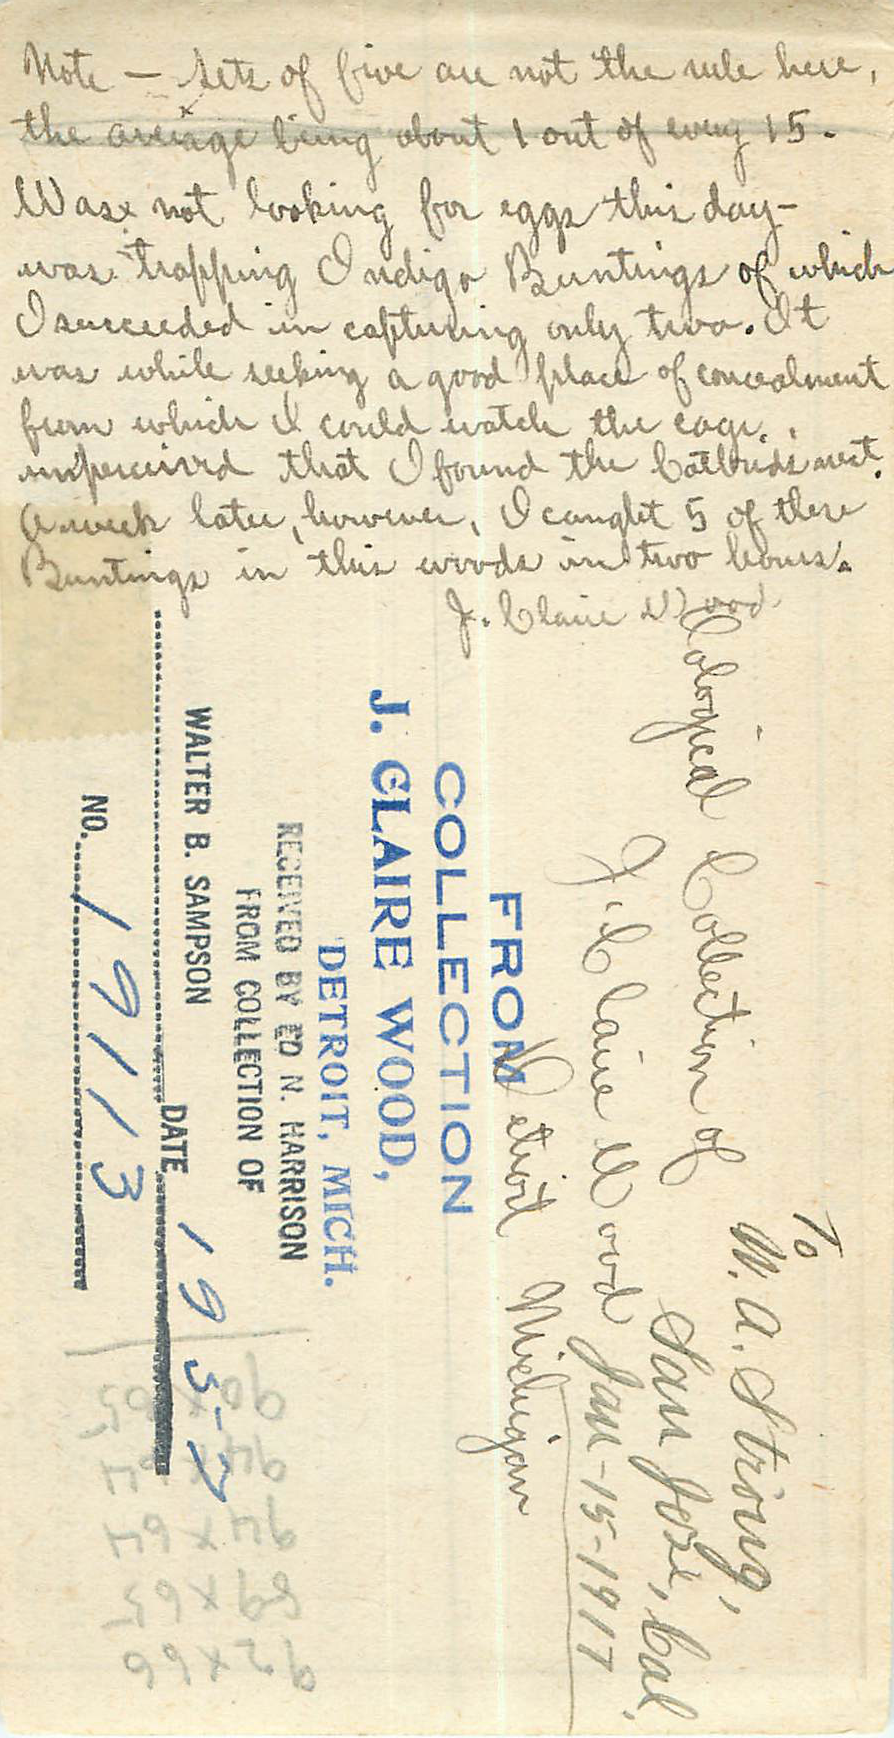 Note — Sets of five are not the rule here,
the average being about 1 out of every 15.
Was not looking for eggs this day—
was trapping Indigo Buntings of which
I succeeded in capturing only two. It
was while seeking a good place of concealment
from which I could watch the cage
unperceived that I found the Catbirds nest.
A week later, however, I caught 5 of these
Buntings in this woods in two hours.
J. Claire Wood
To
W. A. Strong,
San José, Cal.
Jan-15-1917
Oological Collection of
J. Claire Wood
Detroit Michigan
FROM
COLLECTION
J. CLAIRE WOOD,
DETROIT, MICH.
RECEIVED BY ED N. HARRISON
FROM COLLECTION OF
WALTER B. SAMPSON
DATE 1957
NO. 19113
92 x 66
89 x 65
94 x 64
94 x 64
90 x 65